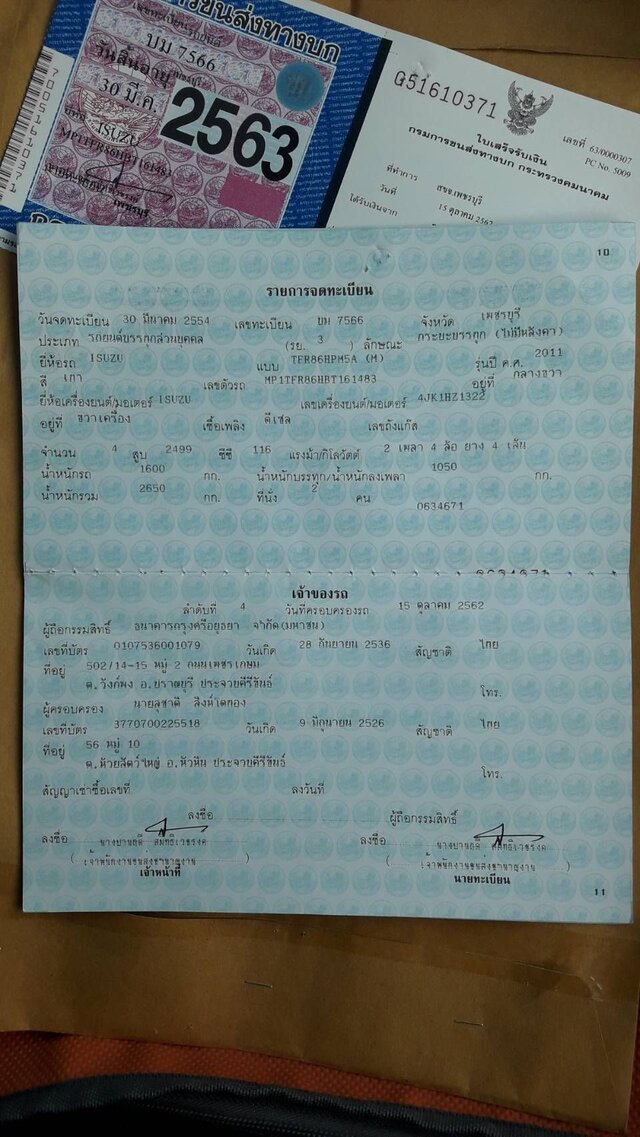 การขนส่งทางบก
เลขทะเบียนรถยนต์
บม 7566
เพชรบุรี
วันสิ้นอายุ
30 มี.ค. 2563
ISUZU
MP1TFR86HBT161483
70051610371
G51610371
เลขที่ 63/0000307
PC No. 5009
ใบเสร็จรับเงิน
กรมการขนส่งทางบก กระทรวงคมนาคม
ที่ทำการ สขจ.เพชรบุรี
วันที่ 15 ตุลาคม 2562
ได้รับเงินจาก
10
รายการจดทะเบียน
วันจดทะเบียน 30 มีนาคม 2554 เลขทะเบียน บม 7566 จังหวัด เพชรบุรี
ประเภท รถยนต์บรรทุกส่วนบุคคล (รย. 3 ) ลักษณะ กระบะบรรทุก (ไม่มีหลังคา)
ยี่ห้อรถ ISUZU แบบ TFR86HPM5A (M) รุ่นปี ค.ศ. 2011
สี เทา เลขตัวรถ MP1TFR86HBT161483 อยู่ที่ กลางขวา
ยี่ห้อเครื่องยนต์/มอเตอร์ ISUZU เลขเครื่องยนต์/มอเตอร์ 4JK1HZ1322
อยู่ที่ ขวาเครื่อง เชื้อเพลิง ดีเซล เลขถังแก๊ส
จำนวน 4 สูบ 2499 ซีซี 116 แรงม้า/กิโลวัตต์ 2 เพลา 4 ล้อ ยาง 4 เส้น
น้ำหนักรถ 1600 กก. น้ำหนักบรรทุก/น้ำหนักลงเพลา 1050 กก.
น้ำหนักรวม 2650 กก. ที่นั่ง 2 คน
0634671
เจ้าของรถ
ลำดับที่ 4 วันที่ครอบครองรถ 15 ตุลาคม 2562
ผู้ถือกรรมสิทธิ์ ธนาคารกรุงศรีอยุธยา จำกัด(มหาชน)
เลขที่บัตร 0107536001079 วันเกิด 28 กันยายน 2536 สัญชาติ ไทย
ที่อยู่ 502/14-15 หมู่ 2 ถนนเพชรเกษม
ต.วังก์พง อ.ปราณบุรี ประจวบคีรีขันธ์ โทร.
ผู้ครอบครอง นายสุชาติ สิงห์โตทอง
เลขที่บัตร 3770700225518 วันเกิด 9 มิถุนายน 2526 สัญชาติ ไทย
ที่อยู่ 56 หมู่ 10
ต.ห้วยสัตว์ใหญ่ อ.หัวหิน ประจวบคีรีขันธ์ โทร.
สัญญาเช่าซื้อเลขที่ ลงวันที่
ลงชื่อ ผู้ถือกรรมสิทธิ์
ลงชื่อ ลงชื่อ
( เจ้าพนักงานขนส่งชำนาญงาน ) ( เจ้าพนักงานขนส่งชำนาญงาน )
เจ้าหน้าที่ นายทะเบียน
11